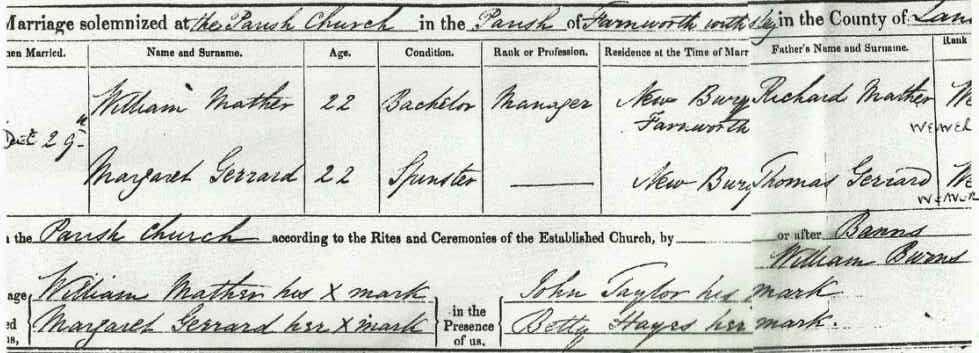 Marriage solemnized at the Parish Church in the Parish of Farnworth with in the County of Lan
hen Married. Name and Surname. Age. Condition. Rank or Profession. Residence at the Time of Marr Father's Name and Surname. Rank
William Mather 22 Bachelor Manager New Bury Richard Mather We
Dec 29 Farnworth WEAVER
Margaret Gerrard 22 Spinster New Bury Thomas Gerrard We
WEAVER
n the Parish Church according to the Rites and Ceremonies of the Established Church, by or after Banns
William Burns
age William Mather his X mark in the John Taylor his mark
ed Margaret Gerrard her X mark Presence Betty Hayes her mark.
us, of us.